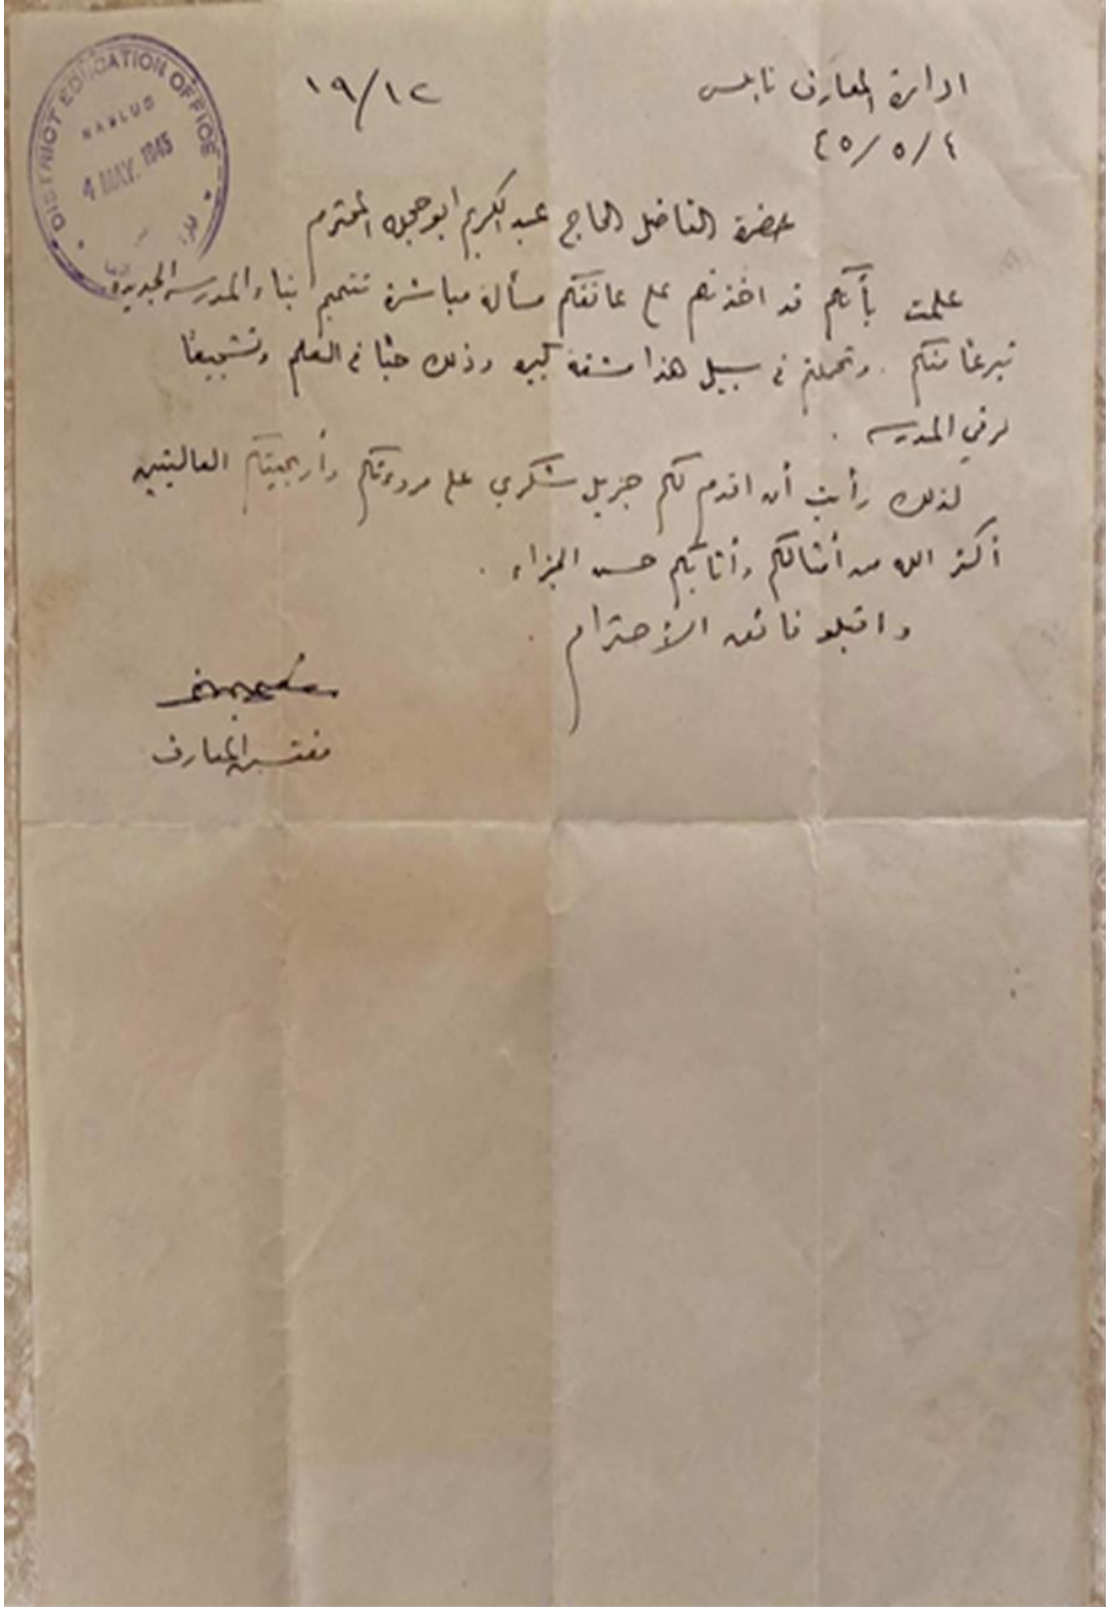 ادارة المعارف نابلس
٤٥/٥/٤
١٩/١٢
DISTRICT EDUCATION OFFICE
NABLUS
4 MAY. 1945
حضرة الفاضل الحاج عبد الكريم ابو حجله المحترم
علمت بأنكم قد اخذتم على عاتقكم مسألة مباشرة تتميم بناء المدرسه الجديدة
تبرعًا منكم . وتحملتم في سبيل هذا مشقة كبيره وذلك حبًا في العلم وتشجيعًا
لرقي المدرسه .
لذلك رأيت أن اقدم لكم جزيل شكري على مروءتكم وأريحيتكم العاليتين
أكثر الله من أمثالكم وأثابكم حسن الجزاء .
واقبلو فائق الاحترام .
مفتش المعارف